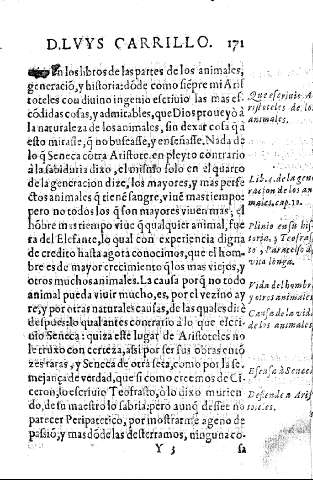 D. LVYS CARRILLO. 171
En los libros de las partes de los animales,
generaciō, y historia: dōde como siēpre mi Arist
toteles cou diuino ingenio escriuio las mas es-
cōdidas cosas, y admirables, que Dios proueyò a
la naturaleza de los animales, sin dexar cosa q̄ a
esto mirasse, q̄ no buscasse, y enseñasse. Nada de
lo q̄ Seneca cōtra Aristote. en pleyto contrario
à la sabiduria dixo, el mismo solo en el quarto
de la generacion dize, los mayores, y mas perfe-
ctos animales q̄ tienē sangre, viuē mas tiempo:
pero no todos los q̄ son mayores viuen mas; el
hōbre mas tiempo viue q̄ qualquier animal, fue
ra del Elefante, lo qual con experiencia digna
de credito hasta agora conocimos, que el hom-
bre es de mayor crecimiento q̄ los mas viejos, y
otros muchos animales. La causa porq̄ no todo
animal pueda viuir mucho, es, por el vezino ay
re, y por otras naturales causas, de las quales diré
despues lo qual antes contrario à lo que escri-
uio Seneca: quiza este lugar de Aristoteles no
le truxo con certeza, assi por ser sus obras entō
zes raras, y Seneca de otra seta, como por la se-
mejança de verdad, que si como creemos de Ci-
ceron, lo escriuio Teofrasto, ò lo dixo murien
do, de su maestro lo sabria: pero aunq̄ dessee no
parecer Peripatetico, por mostrarme ageno de
passiō, y mas dōde las desterramos, ninguna co-
Y 3 sa
Que escriuio A-
ristoteles de los
animales.
Lib. 4. de la gene
racion de los an
males, cap. 10.
Plinio en su his-
toria, y Teofras-
to, y Paracelso de
vita longa.
Vida del hombre
y otros animales
Causa de la vida
de los animales.
Escusa à Seneca
Defende a Aris-
toteles.